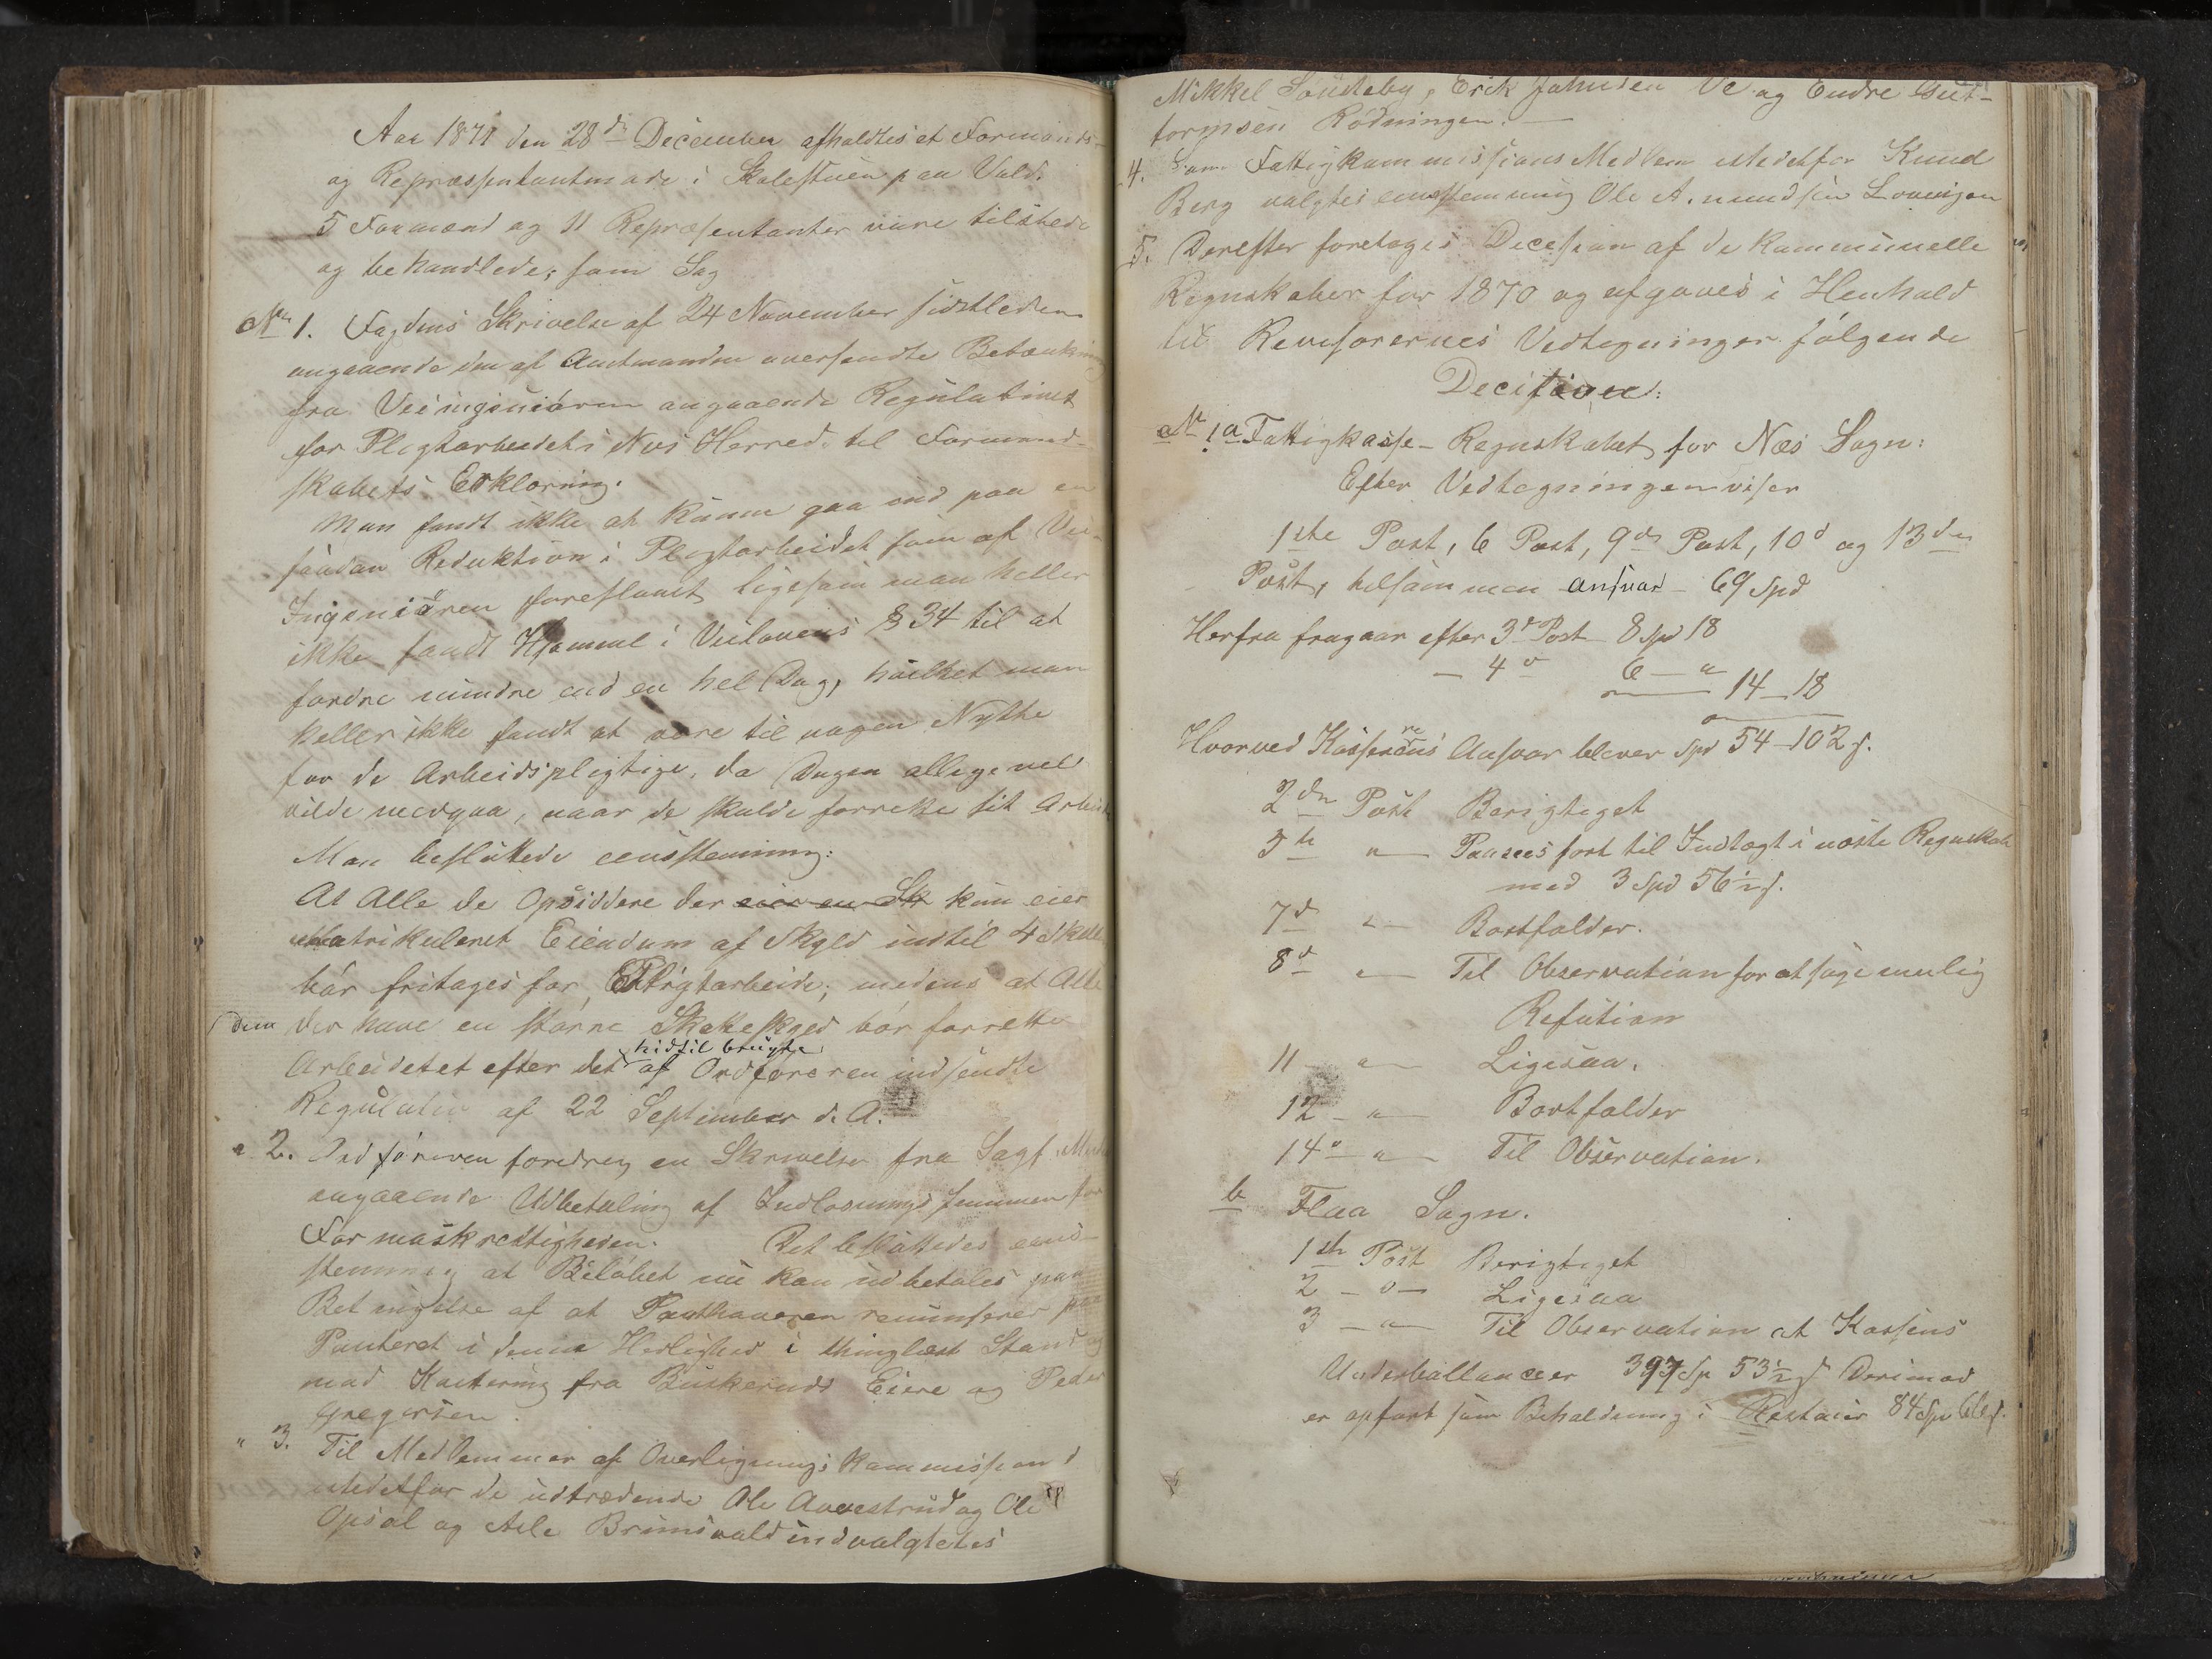 Aar 1871 den 28de December afholdtes et Formands-
og Repræssentantmøde i Skolestuen paa Vold.
5 Formænd og 11 Repræsentanter vare tilstede
og behandlede; som Sag
No 1. Fogdens Skrivelse af 24 November sidstleden
angaaende den af Amtmanden oversendte Betænkning
fra Veiingeniøren angaaende Regulativet
for Pligtarbeidet i Næs Herred, til Formand-
skabets Erklæring.
Man fandt ikke at kunne gaa ind paa en
saadan Reduktion i Pligtarbeidet som af Vei-
Ingeniøren foreslaaet ligesom man heller
ikke fandt Hjemmel i Veilovens § 34 til at
fordre mindre end en hel Dag, hvilket man
heller ikke fandt at være til nogen Nytte
for de Arbeidspligtige, da Dagen alligevel
vilde medgaa, naar de skulde forrette sit Arbeide
Man besluttede eensstemmig:
At Alle de Opsiddere der eier en Sk kun eier
Matrikuleret Eiendom af Skyld indtil 4 Skill
bør fritages for Pligtarbeide; medens at Alle
dem der have en større Skatteskyld bør forrette
Arbeidetet efter det hidtil brugte af Ordføreren indsendte
Regulativ af 22 September d. A.
" 2. Ordføreren foredrog en Skrivelse fra Sagf.
angaaende Udbetaling af Indløsnings summen for
Det besluttedes eens-
stemmig at Beløbet nu kan udbetales paa
Betingelse af at Panthaveren renunserer paa
Panteret i denne Herlighed i thinglæst Stand og
med Kvitering fra Buskeruds Eiere og Peder
Gregersen.
" 3. Til Medlemmer af Overlignings kommission
istedetfor de udtrædende Ole Aavestrud og Ole
Opsal og Asle Brunsvold indvalgtes
Mikkel Søndteby, Erik Johnsen Ve og Endre Gut-
tormsen Rødningen. —
4. Som Fattigkommissions Medlem istedetfor Knud
Berg valgtes eensstemmig Ole Amundsen
5. Derefter foretoges Decesion af de kommunelle
Regnskaber for 1870 og afgaves i Henhold
til Revisorernes Vedtegninger følgende
Decisioner:
No 1 a Fattigkasse-Regnskabet for Næs Sogn:
Efter Vedtegningen viser
1ste Post, 6 Post, 9de Post, 10d og 13den
Post, tilsammen ansvar — 69 Spd
Herfra fragaar efter 3d Post 8 Spd 18
— 4 " 6 — "
14 — 18
Hvorved Kassererens Ansvar bliver Spd 54 — 102 s.
2den Post Berigtiget
5te " — Paasees ført til Indtægt i næste Regnskab
med 3 Spd 56 ½ s.
7d " — Bortfalder.
8d " — Til Observation for at søge mulig
Refution
11 — " — Ligesaa.
12 — " — Bortfalder
14d — " — Til Observation.
b Flaa Sogn.
1ste Post Berigtiget
2 — " — Ligesaa
3 — " — Til Observation at Kassens
Underballancer 397 Sp 53 ½ s Derimod
er opført som Beholdning i Restancer 84 Spd